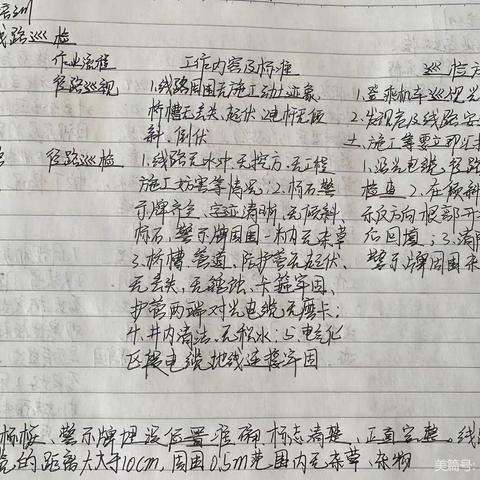 培训
线路巡检
作业流程 工作内容及标准 巡检方
径路巡视 1.线路周围无施工动土迹象,
桥槽无丢失、起伏.2电杆无倾
斜、倒伏
1.登乘机车巡视光
2.发现危及线路安
土、施工等要立即汇报
径路巡检 1.线路无水冲、无挖方、无工程
施工妨害等情况;2.标石、警
示牌齐全、字迹清晰、无倾斜.
标石、警示牌周围一米内无杂草
3.桥槽、管道、防护管无起伏、
无丢失、无锈蚀、卡箍牢固、
护管两端对光电缆无磨卡;
4.井内清洁、无积水;5.电气化
区段电缆地线连接牢固
1.沿光电缆径路
检查 2.在倾斜
示反方向根部开
后回填;3.清除
警示牌周围杂
标桩、警示牌埋设位置准确,标志清楚、正直完整、线
缆的距离大大于10cm,周围0.5m范围内无杂草、杂物
美篇号: